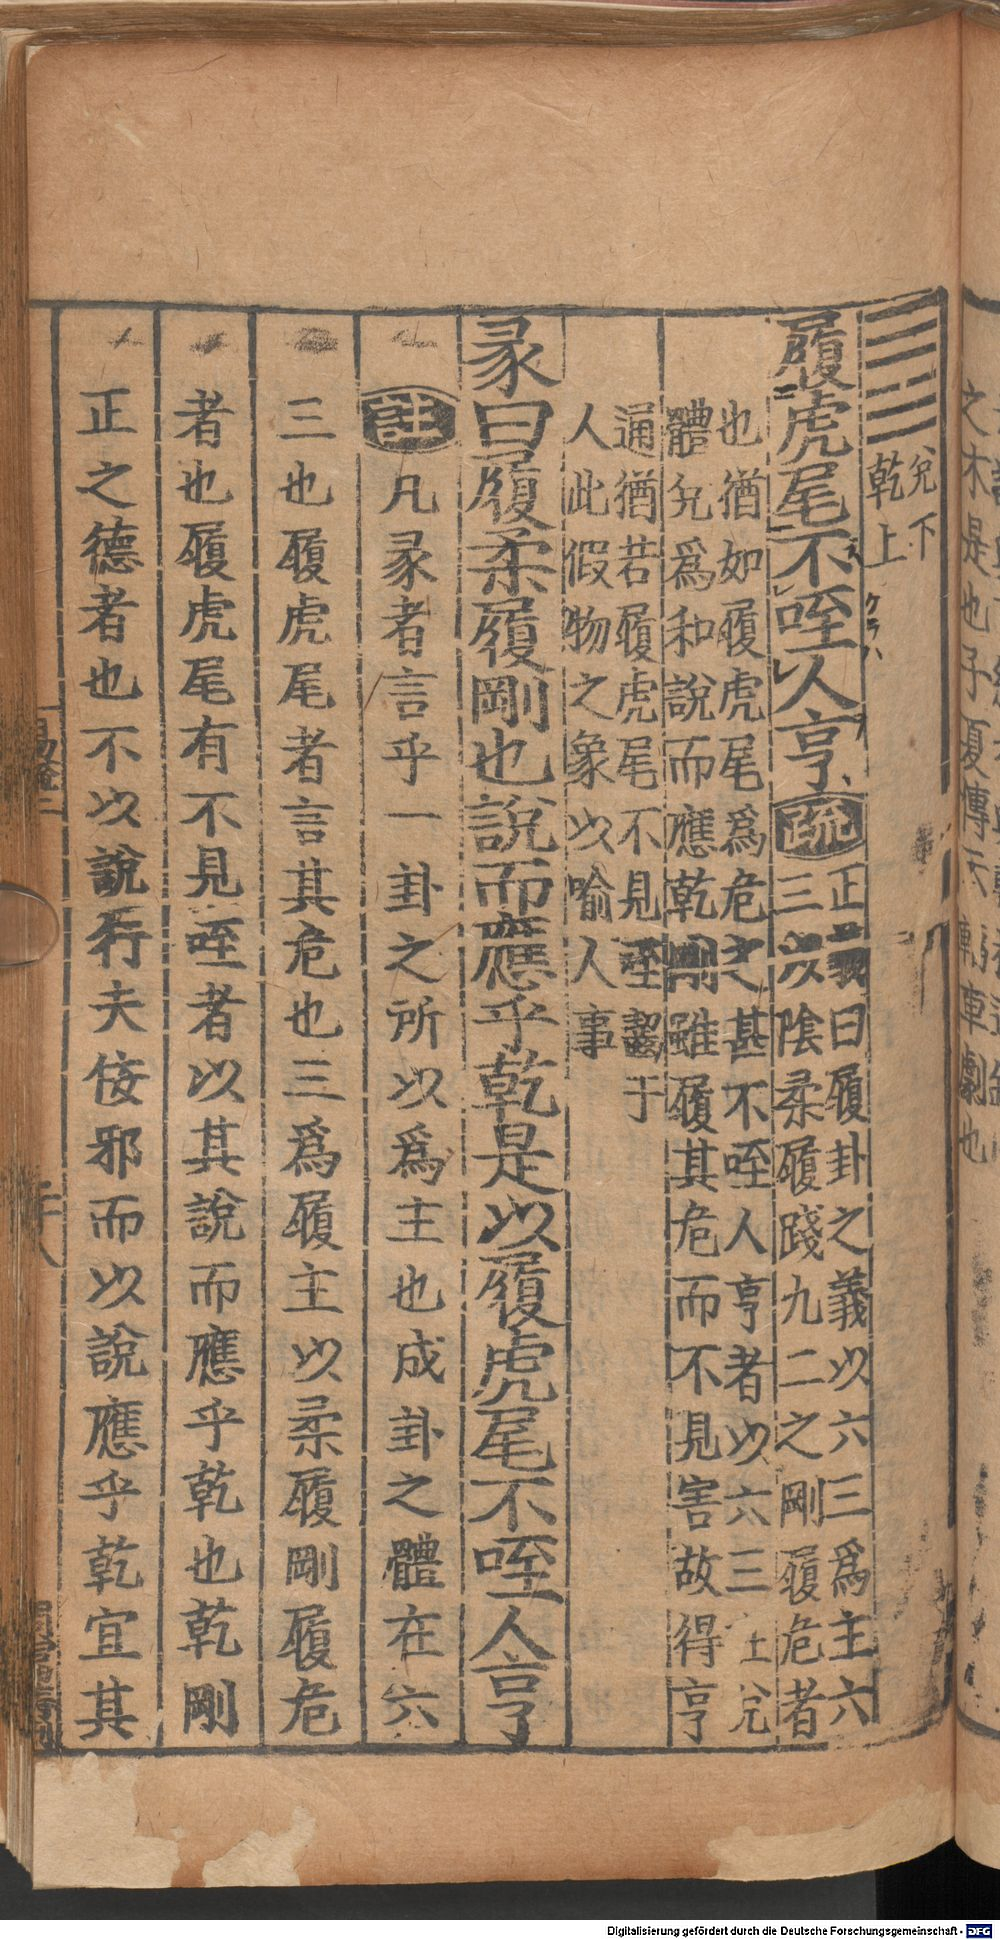 之木是也子夏傳云輹車劇也
兌下
乾上
履虎尾不咥人亨疏正義曰履卦之義以六三爲主六
三以陰柔履踐九二之剛履危者
也猶如履虎尾爲危之甚不咥人亨者以六三在兌
體兌爲和說而應乾剛雖履其危而不見害故得亨
通猶若履虎尾不見咥齧于
人此假物之象以喻人事
彖曰履柔履剛也說而應乎乾是以履虎尾不咥人亨
註凡彖者言乎一卦之所以爲主也成卦之體在六
三也履虎尾者言其危也三爲履主以柔履剛履危
者也履虎尾有不見咥者以其說而應乎乾也乾剛
正之德者也不以說行夫佞邪而以說應乎乾宜其
Digitalisierung gefördert durch die Deutsche Forschungsgemeinschaft - DFG